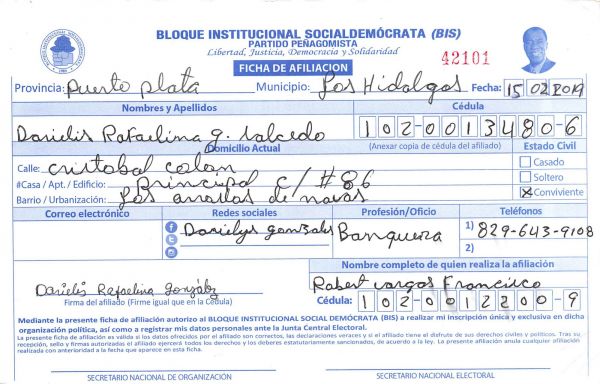 BLOQUE INSTITUCIONAL SOCIALDEMÓCRATA (BIS)
PARTIDO PEÑAGOMISTA
Libertad, Justicia, Democracia y Solidaridad
42101
FICHA DE AFILIACION
Provincia: Puerto plata Municipio: Los Hidalgos Fecha: 15 02 2019
Nombres y Apellidos Cédula
Danielis Rafaelina g. salcedo 102-0013480-6
Domicilio Actual (Anexar copia de cédula del afiliado) Estado Civil
Calle: cristobal colon Casado
#Casa / Apt. / Edificio: Principal c/ #86 Soltero
Barrio / Urbanización: Los de navas Conviviente
Correo electrónico Redes sociales Profesión/Oficio Teléfonos
Danielys gonzales Banquera 1) 829-643-9108
2)
Nombre completo de quien realiza la afiliación
Danielis Rafaelina González Robert vargas Francisco
Firma del afiliado (Firme igual que en la Cédula) Cédula: 102-0012200-9
Mediante la presente ficha de afiliación autorizo al BLOQUE INSTITUCIONAL SOCIAL DEMÓCRATA (BIS) a realizar mi inscripción única y exclusiva en dicha
organización política, así como a registrar mis datos personales ante la Junta Central Electoral.
La presente ficha de afiliación es válida si las datos ofrecidos por el afiliado son correctos, las declaraciones veraces y si el afiliado tiene el disfrute de sus derechos civiles y políticos. Tras su
recepción, sello y firmas autorizadas el afiliado ejercerá todos los derechos y los deberes estatutariamente sancionados, de acuerdo a la ley. La presente afiliación anula cualquier afiliación
realizada con anterioridad a la fecha que aparece en esta ficha.
SECRETARIO NACIONAL DE ORGANIZACIÓN SECRETARIO NACIONAL ELECTORAL